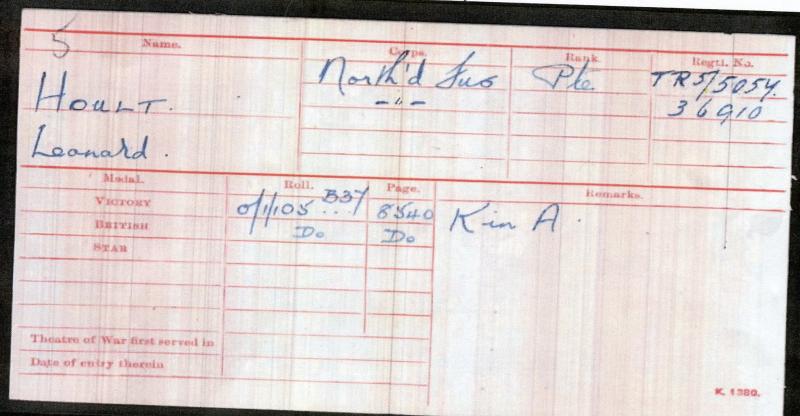 5
Name. Corps. Rank. Regtl. No.
North'd Fus Pte. TR5/5054.
HOULT. -"- 36910
Leonard.
Medal. Roll. Page. Remarks.
VICTORY O/1/105 B37 8540 K in A.
BRITISH Do Do
STAR
Theatre of War first served in
Date of entry therein
K. 1380.